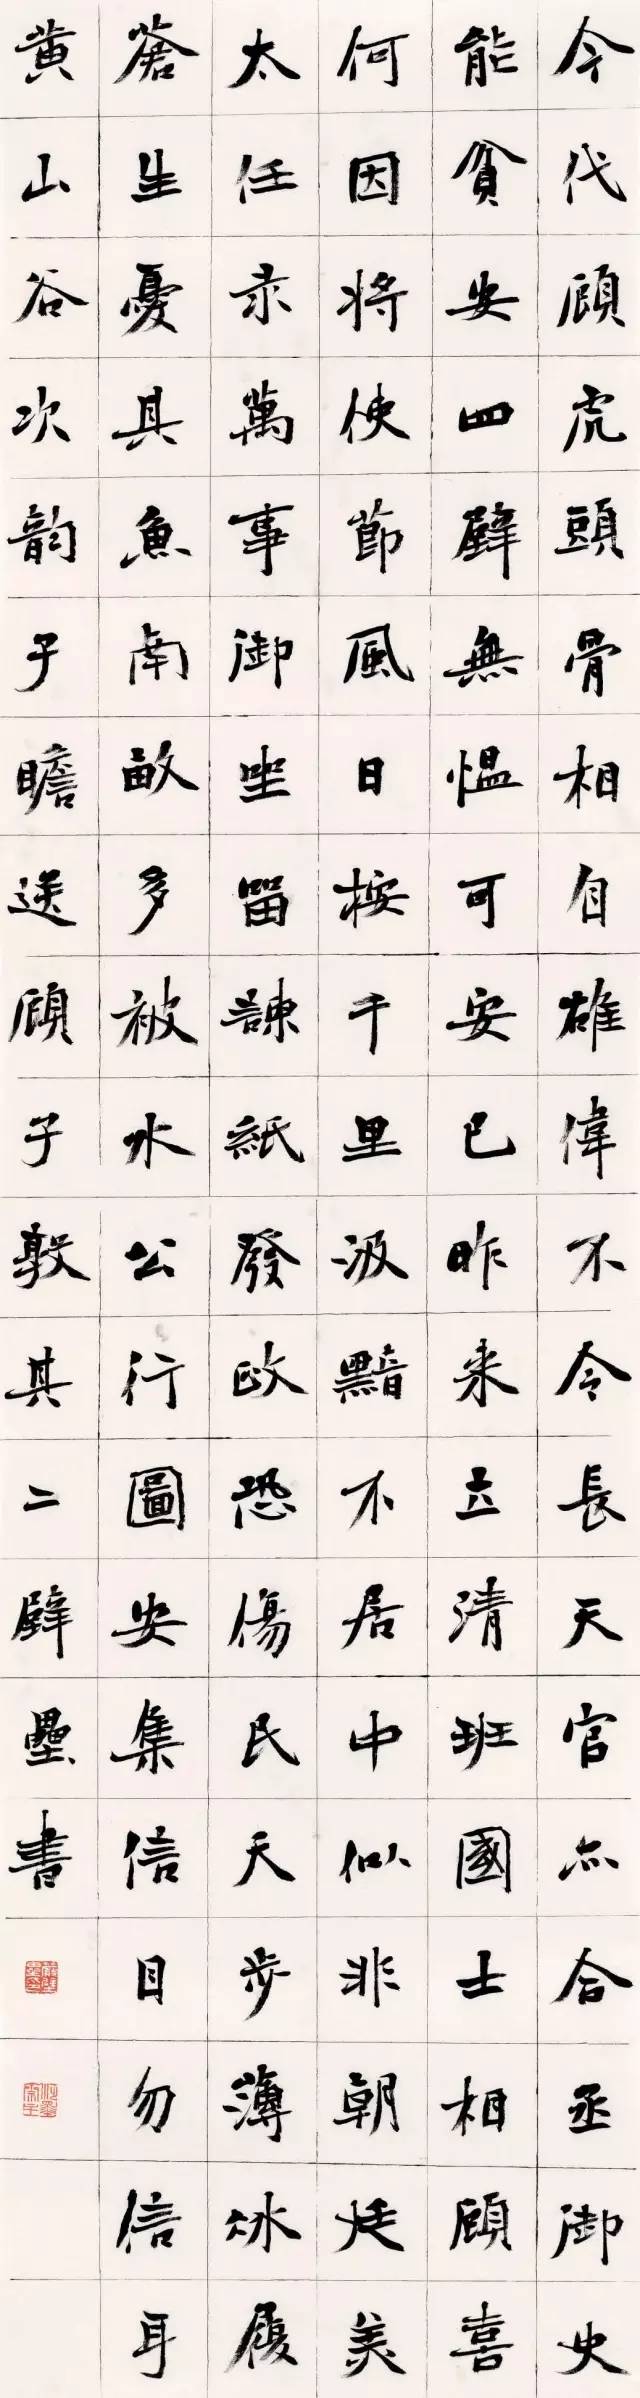 今代顧虎頭骨相自雄偉不令長天官亦合丞御史
能貧安四壁無愠可安已昨来立清班國士相顧喜
何因将使節風日按千里汲黯不居中似非朝廷美
太任录萬事御坐留諫紙發政恐傷民天步薄冰履
蒼生憂其魚南畝多被水公行圖安集信目勿信耳
黄山谷次韵子瞻送顧子敦其二壁壘書